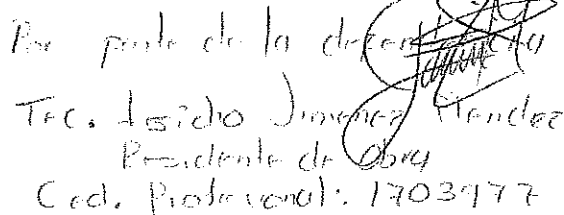 Por parte de la dependencia
Tec. Isidro Jimenez Mendez
Residente de Obra
Ced. Profesional: 1703977